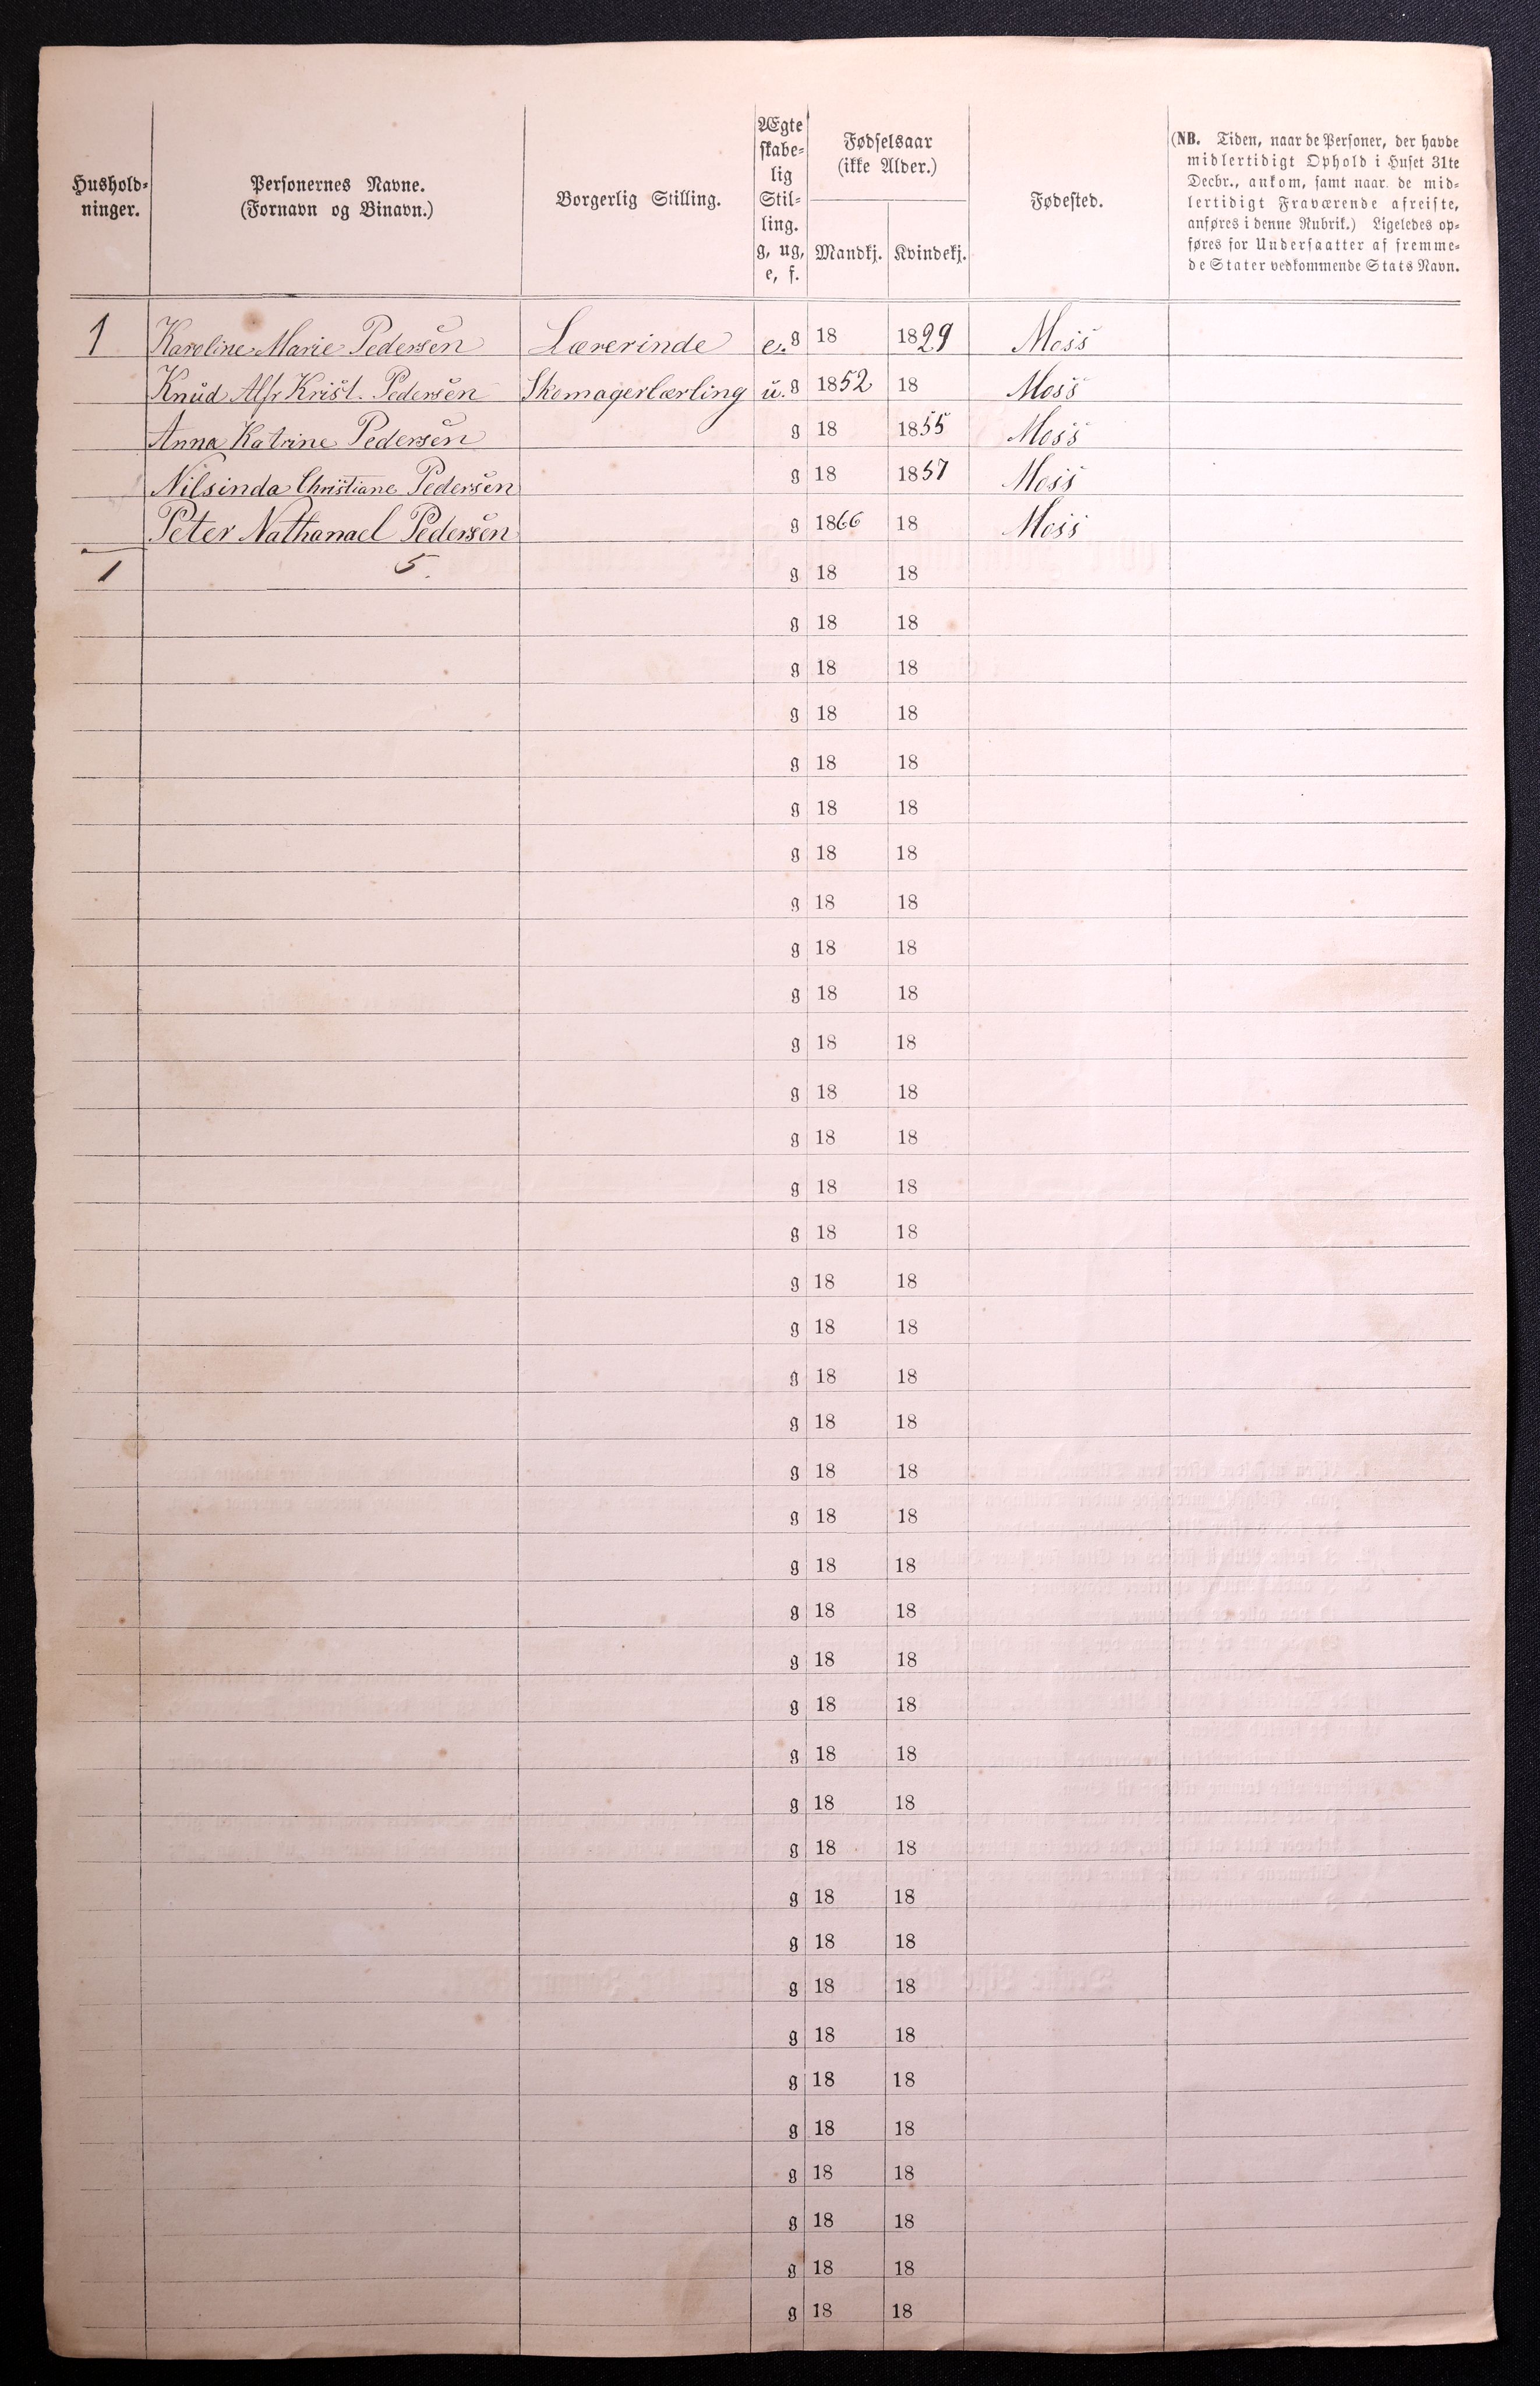 Hushold-
ninger.
Personernes Navne.
(Fornavn og Binavn.)
Borgerlig Stilling.
Ægte
skabe-
lig
Stil-
ling.
g, ug,
e, f.
Fødselsaar
(ikke Alder.)
Mandkj. Kvindekj.
Fødested.
(NB. Tiden, naar de Personer, der havde
midlertidigt Ophold i Huset 31te
Decbr., ankom, samt naar de mid-
lertidigt Fraværende afreiste,
anføres i denne Rubrik.) Ligeledes op-
føres for Undersaatter af fremme-
de Stater vedkommende Stats Navn.
1 Karoline Marie Pedersen Lærerinde e. g 18 1829 Moss
Knud Alfr Krist. Pedersen Skomagerlærling u. g 1852 18 Moss
Anna Katrine Pedersen g 18 1855 Moss
Nilsinda Christiane Pedersen g 18 1857 Moss
Peter Nathanael Pedersen g 1866 18 Moss
1 5. g 18 18
g 18 18
g 18 18
g 18 18
g 18 18
g 18 18
g 18 18
g 18 18
g 18 18
g 18 18
g 18 18
g 18 18
g 18 18
g 18 18
g 18 18
g 18 18
g 18 18
g 18 18
g 18 18
g 18 18
g 18 18
g 18 18
g 18 18
g 18 18
g 18 18
g 18 18
g 18 18
g 18 18
g 18 18
g 18 18
g 18 18
g 18 18
g 18 18
g 18 18
g 18 18
g 18 18
g 18 18
g 18 18